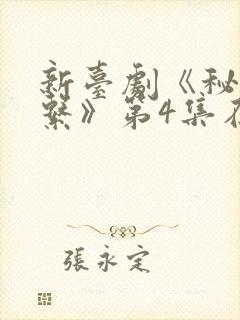 新臺劇《秘
繫》第4集在
張永定